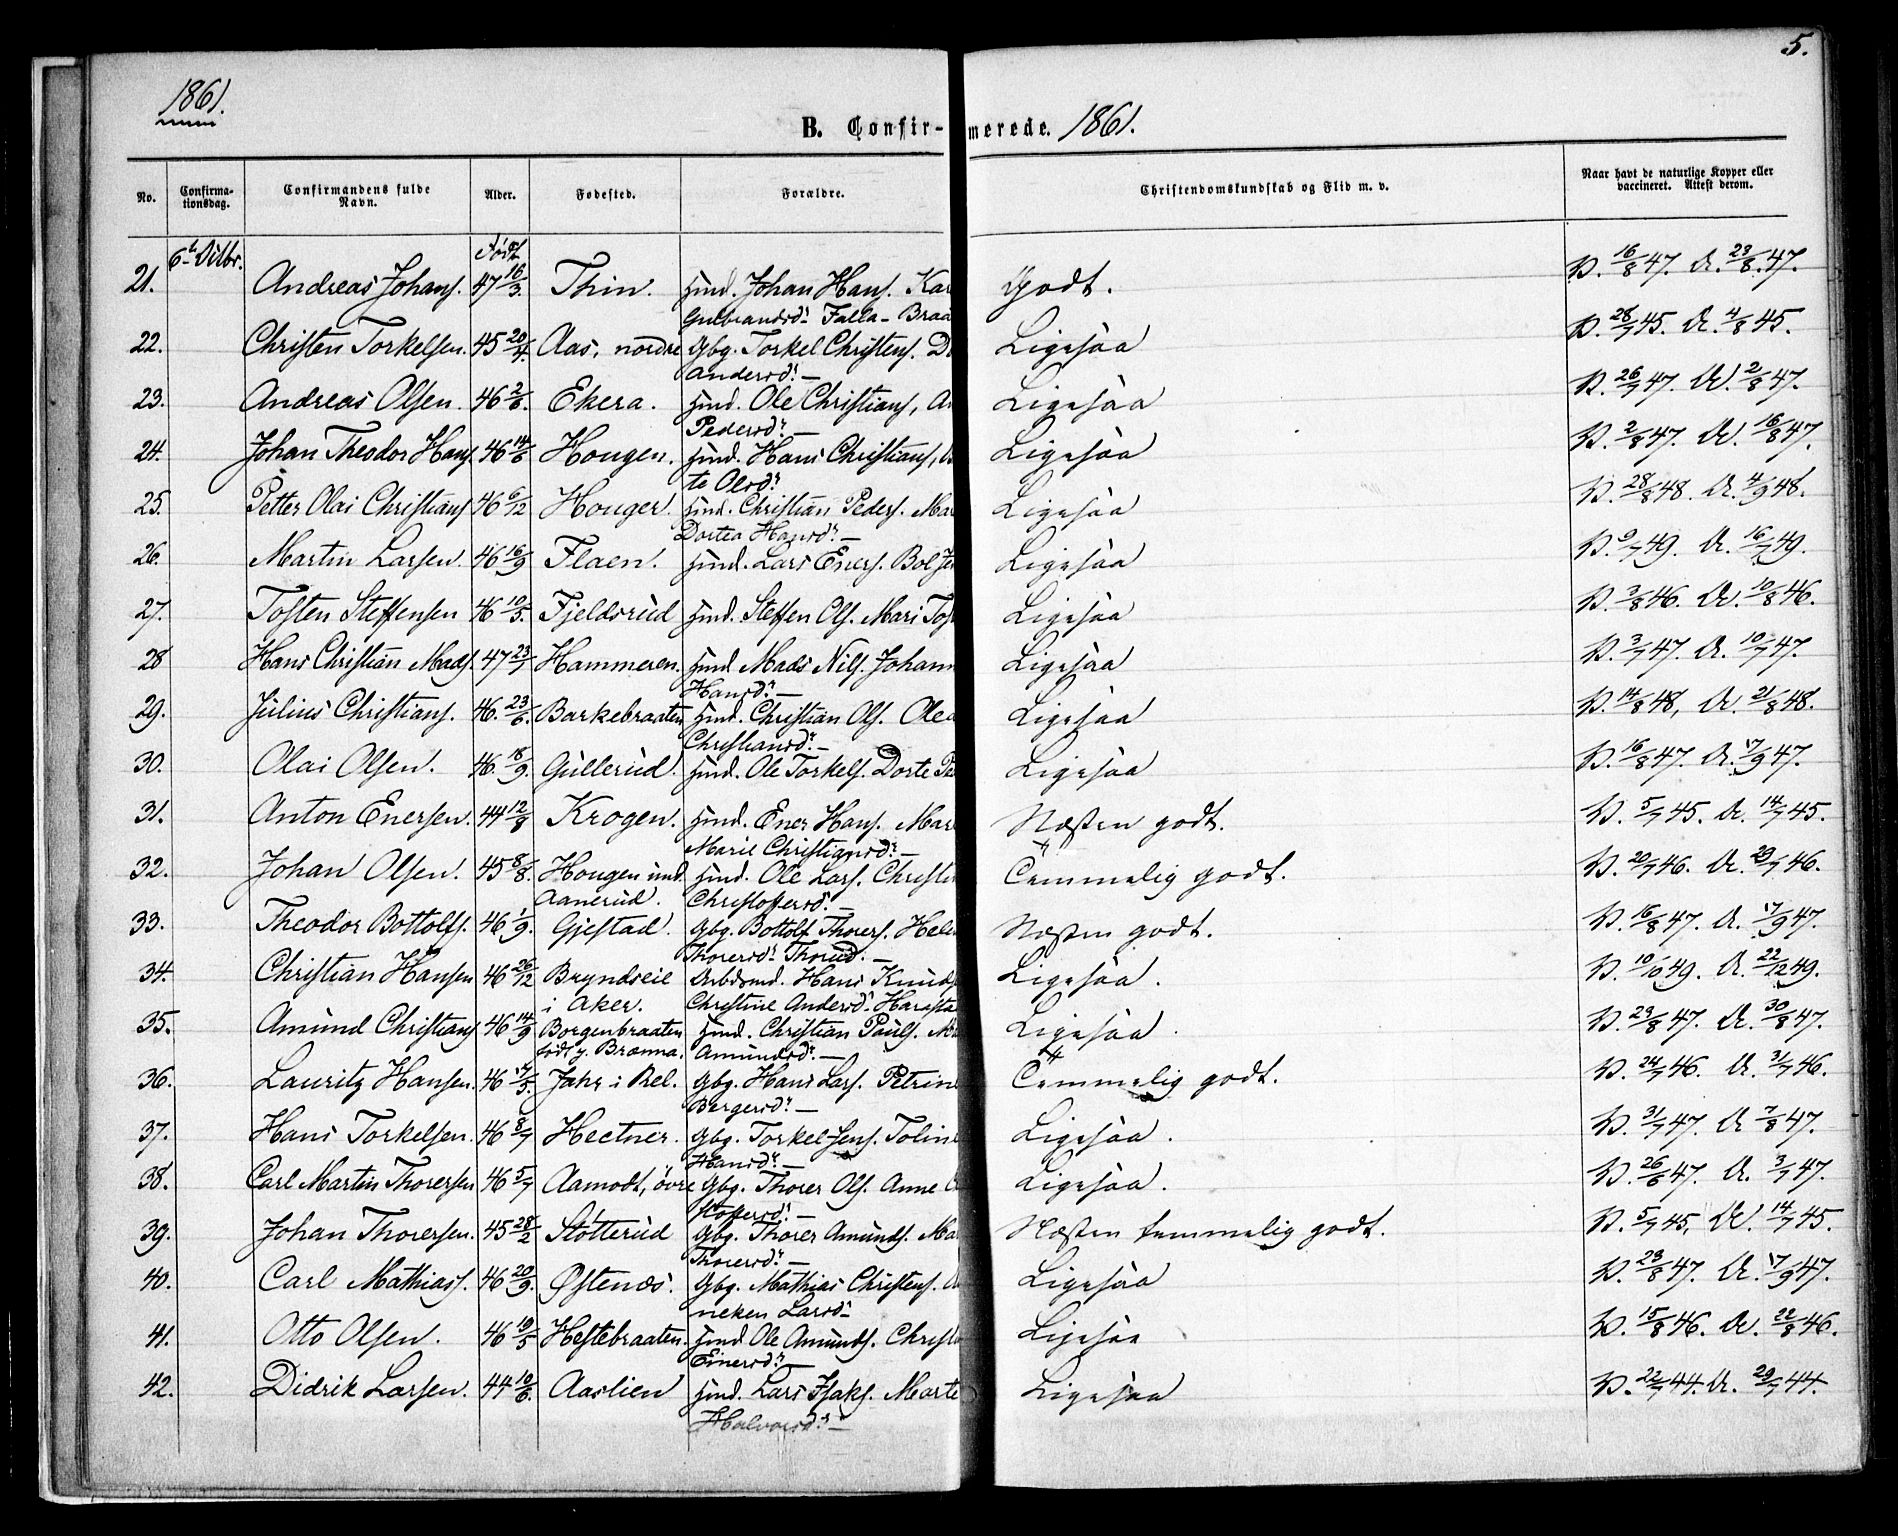 5.
1861.
B. Confir- merede. 1861.
No. Confirma-tionsdag. Confirmandens fulde Navn. Alder. Fødested. Forældre. Christendomskundskab og Flid m. v. Naar havt de naturlige Kopper eller vaccineret. Attest derom.
6te Octbr. Født
21. Andreas Johans. 47 16/3. Thin. Hmd. Johan Hans. Kar Godt. V. 16/8 47. A. 23/8 47.
Gulbrandsdr. Falla- Braa
22. Christen Torkelsen. 45 20/4. Aas, nordre Gbg. Torkel Christens. D Ligesaa V. 28/7 45. A. 4/8 45.
Andersdr. –
23. Andreas Olsen. 46 2/6. Ekera. Hmd. Ole Christians, A Ligesaa V. 26/7 47. A. 2/8 47.
Pedersdr. –
24. Johan Theodor Hans. 46 14/6 Hougen. Hmd. Hans Christians, Ligesaa V. 2/8 47. A. 16/8 47.
te Olsdr.
25. Petter Olai Christians 46 6/12 Houger. Hmd. Christian Peders. Mar Ligesaa V. 28/8 48. A. 4/9 48.
Dortea Hansdr. –
26. Martin Larsen. 46 16/9 Flaen. Hmd. Lars Eners. Bol Je Ligesaa V. 9/7 49. A. 16/7 49.
27. Tosten Steffensen 46 10/5. Fjeldsrud Hmd. Steffen Ols. Mari Tos Ligesaa V. 3/8 46. A. 10/8 46.
28 Hans Christian Mads. 47 23/7 Hammeren. Hmd Mads Nils. Johann Ligesaa V. 3/7 47. A. 10/7 47.
Hansdr. –
29. Julius Christians. 46. 23/6. Barkebraaten Hmd. Christian Ols. Olea Ligesaa V. 14/8 48, A. 21/8 48.
Christiansdr. –
30. Olai Olsen. 46. 18/9. Gullerud. Hmd. Ole Torkels. Dorte Pe Ligesaa V. 16/8 47. A. 7/9 47.
31. Anton Enersen. 44 12/8 Krogen. Hmd. Ener Hans. Mar Næsten godt. V. 5/7 45. A. 14/7 45.
Marie Christiansdr. –
32. Johan Olsen. 45 8/8. Hougen und. Hmd. Ole Lars. Christi Temmelig godt. V. 20/7 46. A. 29/7 46.
Aanerud. Christoffersdr. –
33. Theodor Bottolfs. 46 1/9. Gjestad. Gbg. Bottolf Thorers. Hele Næsten godt. V. 16/8 47. A. 7/9 47.
Thorersdr. Thorud. –
34. Christian Hansen 46 26/12 Bryndseie Arbdsmd. Hans Knuds Ligesaa. V. 10/10 49. A. 22/12 49.
i Aker. Christine Andersdr. Harasta
35. Amund Christians 46 14/9 Borgenbraaten Hmd. Christian Pauls. Ma Ligesaa. V. 23/8 47. A. 30/8 47.
født p. Brænna. Amundsdr. –
36. Lauritz Hansen. 46 17/5. Jahr i Bel. Gbg. Hans Lars. Petrine Temmelig godt. V. 24/7 46. A. 31/7 46.
Bergersdr. –
37. Hans Torkelsen. 46 8/7 Hectner. Gbg. Torkel Jens. Toline Ligesaa. V. 31/7 47. A 7/8 47.
Hansdr. –
38. Carl Martin Thorersen 46 5/7 Aamodt, øvre Gbg. Thorer Ols. Anne C Ligesaa. V. 26/6 47. A. 3/7 47.
stoffersdr. –
39. Johan Thorersen. 45 28/2 Stotterud Gbg. Thorer Amunds. Ma Næsten temmelig godt. V. 5/7 45, A. 14/7 45.
Thorersdr. –
40. Carl Mathias. 46 20/9. Østenæs. Gbg. Mathias Christens. A Ligesaa V. 23/8 47. A. 7/9 47.
neken Larsdr
41. Otto Olsen. 46 19/5 Heftebraaten. Hmd Ole Amunds. Christi Ligesaa V. 15/8 46. A. 22/8 46.
Einersdr. –
42. Didrik Larsen. 44 19/6. Aaslien Hmd. Lars Isaks. Marte Ligesaa V. 22/7 44. A. 29/7 44.
Halvorsdr. –